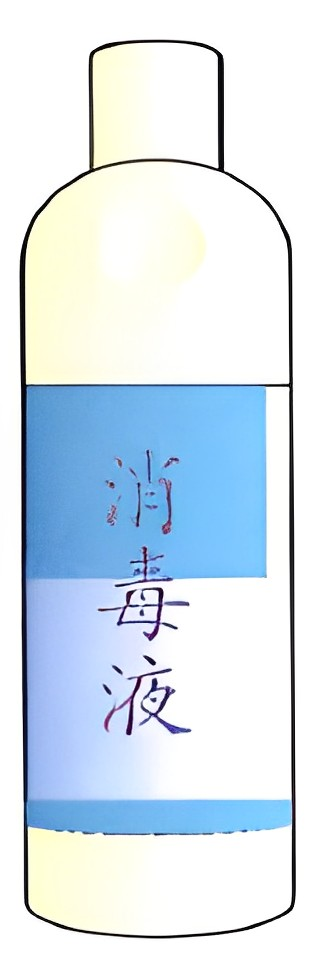 消毒液